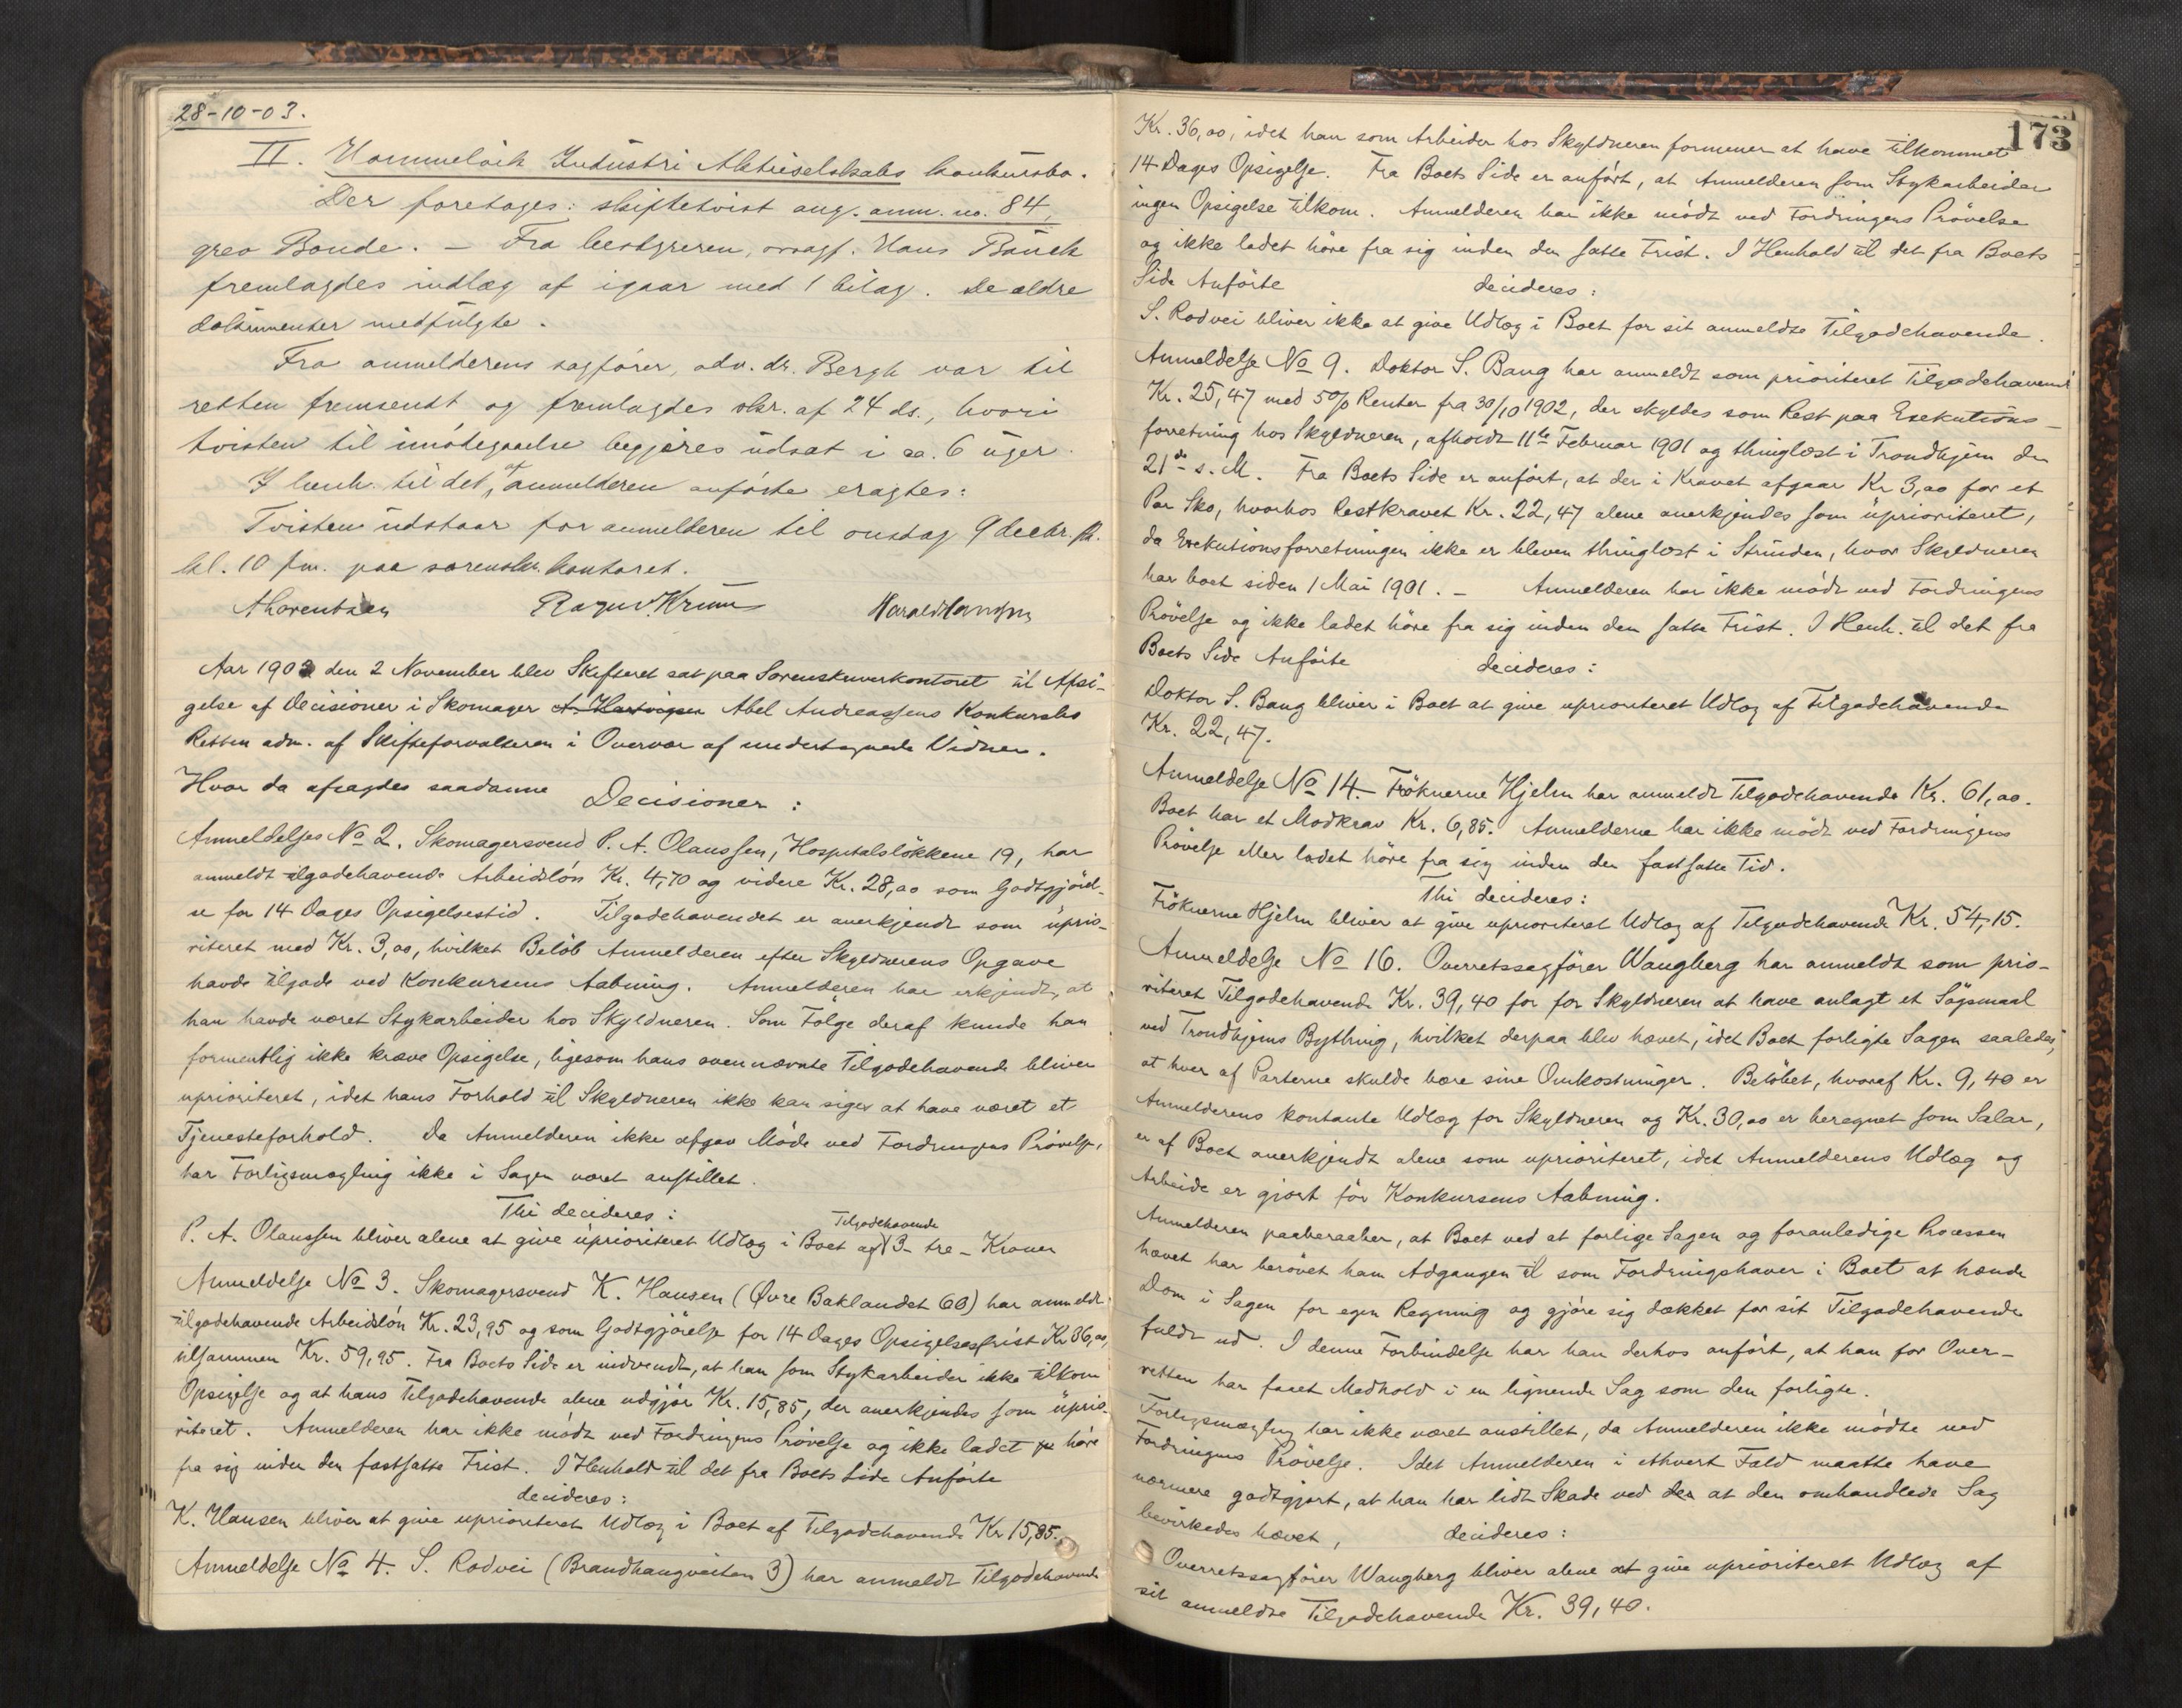 28-10-03.
II. Hommelvik Industri Aktieselskabs konkursbo.
Der foretages: skiftetvist ang. anm. no. 84,
grev Bonde. – Fra bestyreren, ovragf. Hans Bauck
fremlagdes indlæg af igaar med 1 bilag. De ældre
dokumenter medfulgte.
Fra anmelderens sagfører, adv. dr. Bergh var til
retten fremsendt og fremlagdes skr. af 24 ds., hvori
tvisten til imødegaaelse begjæres udsat i ca. 6 uger.
I henh. til det af anmelderen anførte eragtes:
Tvisten udstaar for anmelderen til onsdag 9 decbr. 
kl. 10 fm. paa sorenskr. kontoret.
A Lorentzen Ragnv. Krum Harald Hansen
Aar 1903 den 2 November blev Skifteret sat paa Sorenskriverkontoret til Afsi-
gelse af Decisioner i Skomager A. Hartvigsen Abel Andreassens Konkursbo
Retten adm. af Skifteforvalteren i Overvær af undertegnede Vidner.
Hvor da afsagdes saadanne Decisioner:
Anmeldelses No 2. Skomagersvend P. A. Olaussen, Hospitalsløkkene 19, har
anmeldt tilgodehavende Arbeidsløn Kr. 4,70 og videre Kr. 28,00 som Godtgjørel-
se for 14 Dages Opsigelsestid. Tilgodehavendet er anerkjendt som uprio-
riteret med Kr. 3,00, hvilket Beløb Anmelderen efter Skyldnerens Opgave
havde tilgode ved Konkursens Aabning. Anmelderen har erkjendt, at
han havde været Stykarbeider hos Skyldneren. Som Følge deraf kunde han
formentlig ikke kræve Opsigelse, ligesom hans ovennævnte Tilgodehavende bliver
uprioriteret, idet hans Forhold til Skyldneren ikke kan siges at have været et
Tjenesteforhold. Da Anmelderen ikke afgav Møde ved Fordringens Prøvelse,
har Forligsmægling ikke i Sagen været anstillet.
Thi decideres:
P. A. Olaussen bliver alene at give uprioriteret Udlæg i Boet af Tilgodehavende 3- tre - Kroner
Anmeldelse No 3. Skomagersvend K. Hansen (Øvre Baklandet 60) har anmeldt
tilgodehavende Arbeidsløn Kr. 23,95 og som Godtgjørelse for 14 Dages Opsigelsesfrist Kr 36,00,
tilsammen Kr. 59,95. Fra Boets Side er indvendt, at han som Stykarbeider ikke tilkom
Opsigelse og at hans Tilgodehavende alene udgjør Kr. 15,85, der anerkjendes som uprio-
riteret. Anmelderen har ikke mødt ved Fordringens Prøvelse og ikke ladet høre
fra sig inden den fastsatte Frist. I Henhold til det fra Boets Side Anførte
decideres:
K. Hansen bliver at give uprioriteret Udlæg i Boet af Tilgodehavende Kr 15,85.
Anmeldelse No 4. S. Rodvei (Brandhaugveiten 3) har anmeldt Tilgodehavende
173
Kr. 36,00, idet han som Arbeider hos Skyldneren formener at have tilkommet
14 Dages Opsigelse. Fra Boets Side er anført, at Anmelderen som Stykarbeider
ingen Opsigelse tilkom. Anmelderen har ikke mødt ved Fordringens Prøvelse
og ikke ladet høre fra sig inden den satte Frist. I Henhold til det fra Boets
Side Anførte decideres:
S. Rodvei bliver ikke at give Udlæg i Boet for sit anmeldte Tilgodehavende.
Anmeldelse No 9. Doktor S. Bang har anmeldt som prioriteret Tilgodehavende
Kr. 25,47 med 5% Renter fra 30/10 1902, der skyldes som Rest paa Exekutions-
forretning hos Skyldneren, afholdt 11te Februar 1901 og thinglæst i Trondhjem den
21de s. M. Fra Boets Side er anført, at der i Kravet afgaar Kr 3,00 for et
Par Sko, hvorhos Restkravet Kr. 22,47 alene anerkjendes som uprioriteret,
da Exekutionsforretningen ikke er bleven thinglæst i Strinden, hvor Skyldneren
har boet siden 1 Mai 1901. – Anmelderen har ikke mødt ved Fordringens
Prøvelse og ikke ladet høre fra sig inden den satte Frist. I Henh. til det fra
Boets Side Anførte decideres:
Doktor S. Bang bliver i Boet at give uprioriteret Udlæg af Tilgodehavende
Kr. 22,47.
Anmeldelse No 14. Frøknerne Hjelm har anmeldt Tilgodehavende Kr. 61,00.
Boet har et Modkrav Kr. 6,85. Anmelderne har ikke mødt ved Fordringens
Prøvelse eller ladet høre fra sig inden den fastsatte Tid.
Thi decideres:
Frøknerne Hjelm bliver at give uprioriteret Udlæg af Tilgodehavende Kr. 54,15.
Anmeldelse No 16. Overretssagfører Wangberg har anmeldt som prio-
riteret Tilgodehavende Kr. 39,40 for for Skyldneren at have anlagt et Søgsmaal
ved Trondhjems Bything, hvilket derpaa blev hævet, idet Boet forligte Sagen saaledes,
at hver af Parterne skulde bære sine Omkostninger. Beløbet, hvoraf Kr. 9,40 er
Anmelderens kontante Udlæg for Skyldneren og Kr. 30,00 er beregnet som Salær,
er af Boet anerkjendt alene som uprioriteret, idet Anmelderens Udlæg og
Arbeide er gjort før Konkursens Aabning.
Anmelderen paaberaaber, at Boet ved at forlige Sagen og foranledige Processen
hævet har berøvet ham Adgangen til som Fordringshaver i Boet at hænde
Dom i Sagen for egen Regning og gjøre sig dækket for sit Tilgodehavende
fuldt ud. I denne Forbindelse har han derhos anført, at han for Over-
retten har faaet Medhold i en lignende Sag som den forligte.
Forligsmægling har ikke været anstillet, da Anmelderen ikke mødte ved
Fordringens Prøvelse. Idet Anmelderen i ethvert Fald maatte have
nærmere godtgjort, at han har lidt Skade ved den at den omhandlede Sag
bevirkedes hævet, decideres:
Overretssagfører Wangberg bliver alene at give uprioriteret Udlæg af
sit anmeldte Tilgodehavende Kr. 39,40.